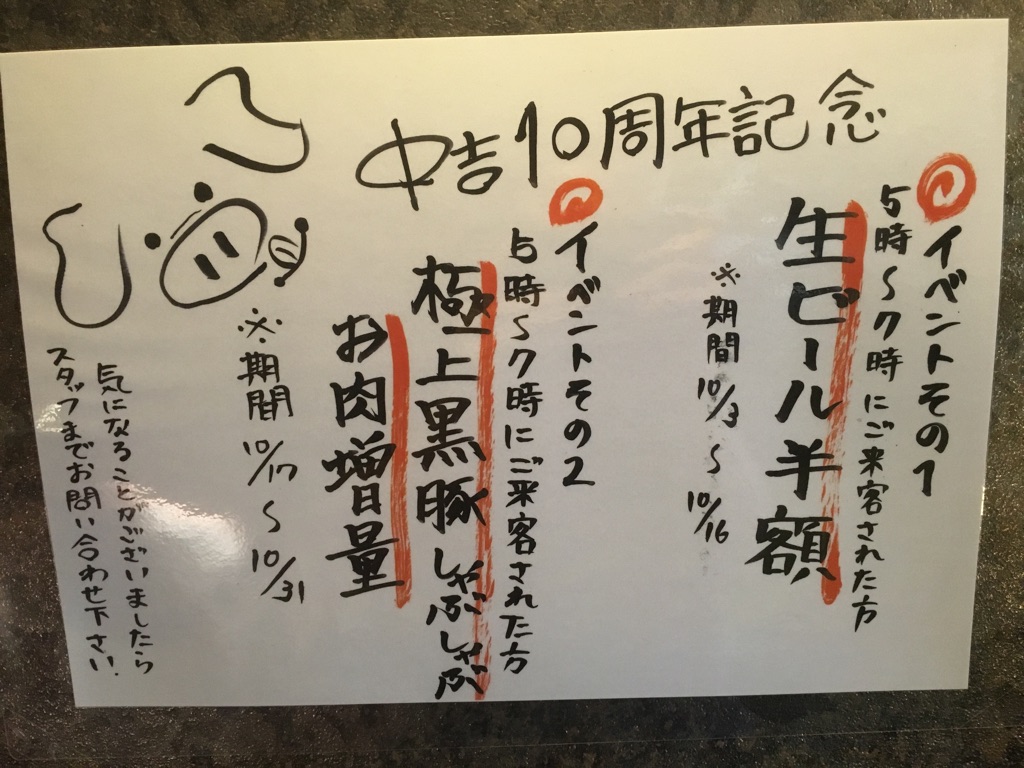 中吉10周年記念
イベントその1
5時～7時にご来客された方
生ビール半額
※期間 10/3 ～ 10/16
イベントその2
5時～7時にご来客された方
極上黒豚しゃぶしゃぶ
お肉増量
※期間 10/17 ～ 10/31
気になることがございましたら
スタッフまでお問い合わせ下さい.